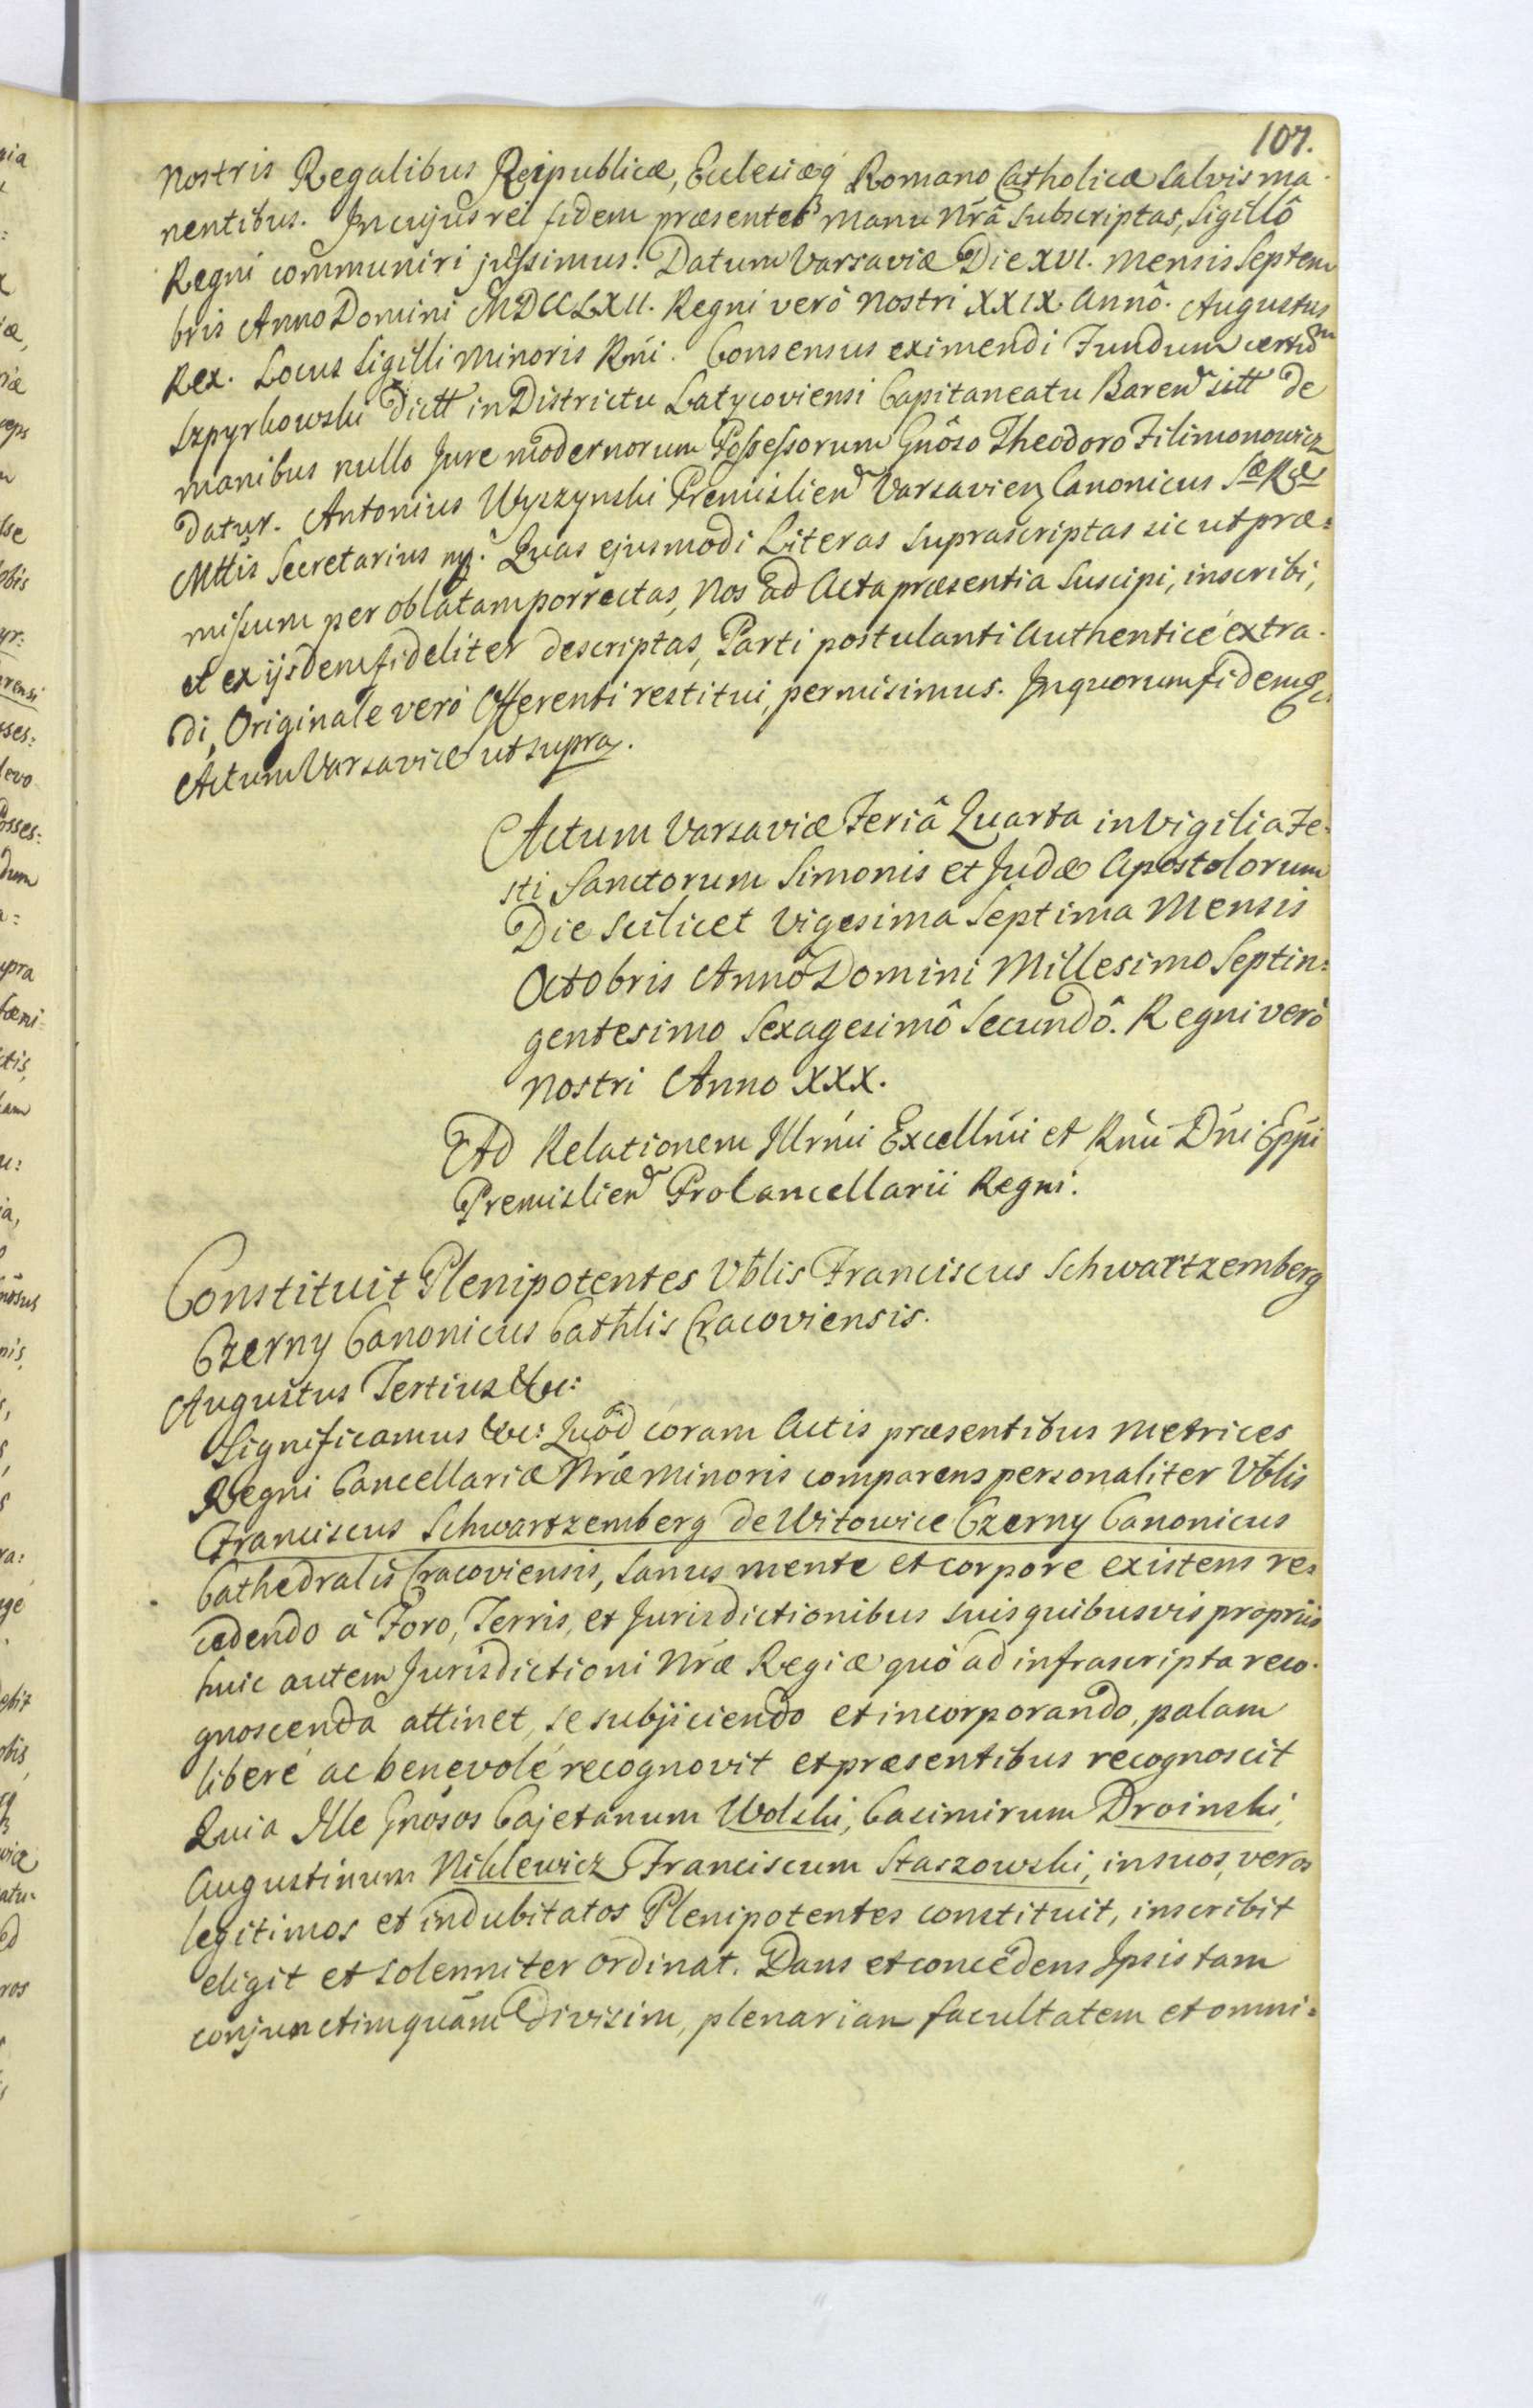 107.
Nostris Regalibus Reipublicæ, Ecclesiæq Romano Catholicæ Salvis ma-
nentibus. In cujus rei fidem præsentes manu Nrâ Subscriptas, Sigillô
Regni communiri jussimus. Datum Varsaviæ Die XVI. Mensis Septem
bris Anno Domini MDCCLXII. Regni verô Nostri XXIX. Annô. Augustus
Rex. Locus Sigilli Minoris Rni. Consensus eximendi Fundum certum
Szpyrkowski dictt in Districtu Latycoviensi Capitaneatu Baren sitt de
manibus nullo Jure modernorum Possessorum Gnôso Theodoro Filimonowicz
datur. Antonius Wyszynski Premislien Varsavien Canonicus Sæ Ræ
Mttis Secretarius mp. Quas ejusmodi Literas suprascriptas sic ut præ=
missum per oblatam porrectas, Nos ad Acta præsentia Suscipi, inscribi,
et ex ijsdem fideliter descriptas, Parti postulanti Authenticè extra-
di, Originale verò Offerenti restitui, permisimus. In quorum fidem &c.
Actum Varsaviæ ut supra.
Actum Varsaviæ Feriâ Quarta in Vigilia Fe-
sti Sanctorum Simonis et Judæ Apostolorum
Die scilicet Vigesima Septima Mensis
Octobris Annô Domini Millesimo Septin=
gentesimo Sexagesimô Secundô. Regni verò
Nostri Anno XXX.
Ad Relationem Illrmi Excellmi et Rmi Dni Eppi
Premislien ProCancellarii Regni.
Constituit Plenipotentes Vblis Franciscus Schwartzemberg
Czerny Canonicus Cathlis Cracoviensis.
Augustus Tertius &c:
Significamus &c: Quod coram Actis præsentibus Metrices
Regni Cancellariæ Nræ Minoris comparens personaliter Vblis
Franciscus Schwartzemberg de Witowice Czerny Canonicus
Cathedralis Cracoviensis, sanus mente et corpore existens re=
cedendo à Foro, Terris, et Jurisdictionibus suis quibusvis propriis
huic autem Jurisdictioni Nræ Regiæ quò ad infrascripta reco-
gnoscenda attinet, se subjiciendo et incorporando, palam
liberè ac benevolè recognovit et præsentibus recognoscit
Quia Ille Gnôsos Cajetanum Wolski, Casimirum Droinski,
Augustinum Niklewicz Franciscum Staszowski, in suos, veros
legitimos et indubitatos Plenipotentes constituit, inscribit
eligit et solenniter ordinat. Dans et concedens Ipsis tam
conjunctim quàm divisim, plenariam facultatem et omni=